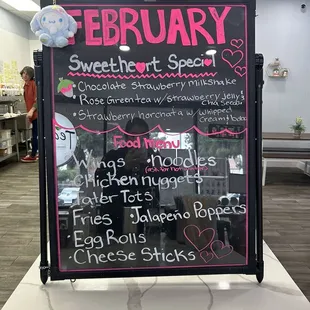 FEBRUARY
Sweetheart Special
• Chocolate Strawberry milkshake
• Rose Green tea w/ strawberry Jelly &
Chia Seeds
• Strawberry horchata w/ whipped
cream & boba
Food menu
• Wings • Noodles
• Chicken nuggets
• Tater Tots
• Fries • Jalapeño Poppers
• Egg Rolls
• Cheese Sticks